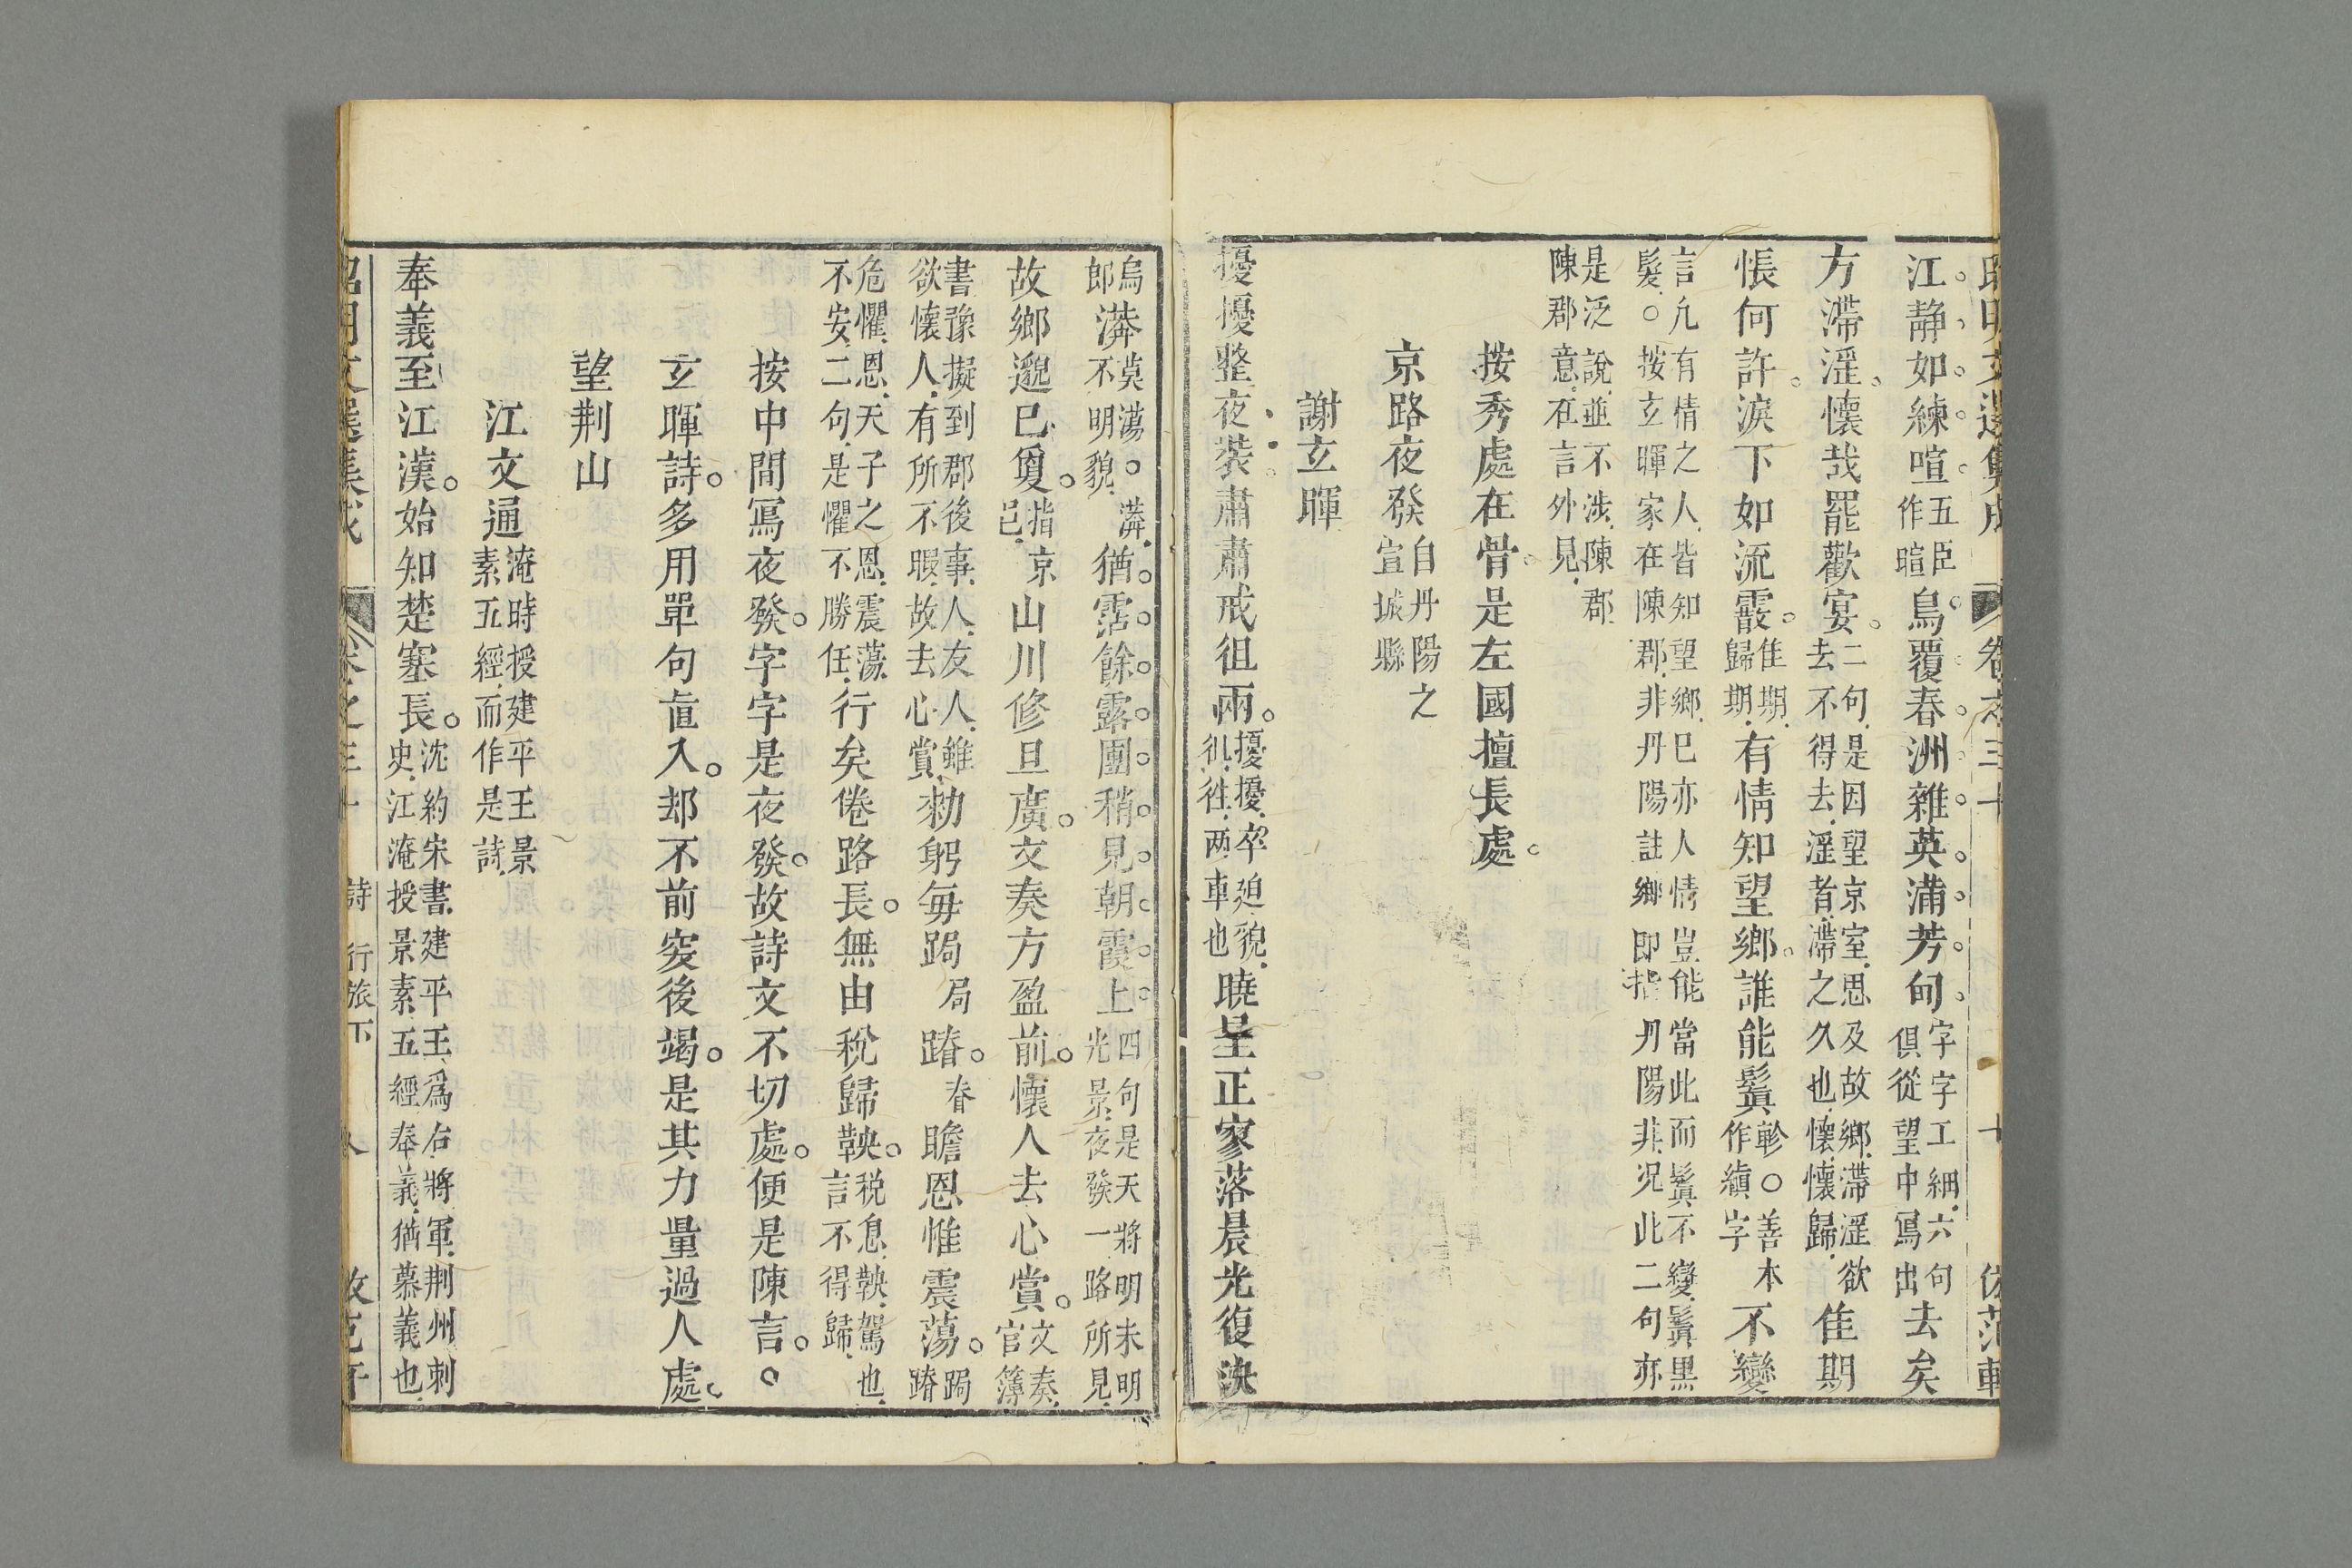 江靜如練喧五臣作暄鳥覆春洲雜英滿芳甸字字工細六句俱從望中寫出去矣
方滯淫懷哉罷歡宴二句是因望京室思及故鄉滯淫欲去不得去淫者滯之久也懷懷歸佳期
悵何許淚下如流霰佳期歸期有情知望鄉誰能鬒軫○善本作縝字不變
言凡有情之人皆知望鄉巳亦人情豈能當此而鬒不變鬒黑髮○按玄暉家在陳郡非丹陽註鄉即指丹陽非況此二句亦
是泛說並不涉陳郡陳郡意在言外見
按秀處在骨是左國擅長處
京路夜發自丹陽之宣城縣
謝玄暉
擾擾整夜裝肅肅戒徂兩擾擾卒迫貌徂往两車也曉星正寥落晨光復泱
烏郎漭莫蕩○漭不明貌猶霑餘露團稍見朝霞上四句是天將明未明光景夜發一路所見
故鄉邈已夐指京邑山川修且廣文奏方盈前懷人去心賞文奏官簿
書豫擬到郡後事人友人雖欲懷人有所不暇故去心賞勑躬每跼局蹐脊瞻恩惟震蕩跼蹐
危懼恩天子之恩震蕩不安二句是懼不勝任行矣倦路長無由稅歸鞅税息鞅駕也言不得歸
按中間寫夜發字字是夜發故詩文不切處便是陳言○
玄暉詩多用單句直入却不前突後竭是其力量過人處
望荆山
江文通淹時授建平王景素五經而作是詩
奉義至江漢始知楚塞長沈約宋書建平王爲右將軍荆州刺史江淹授景素五經奉義猶慕義也
詩 行旅下